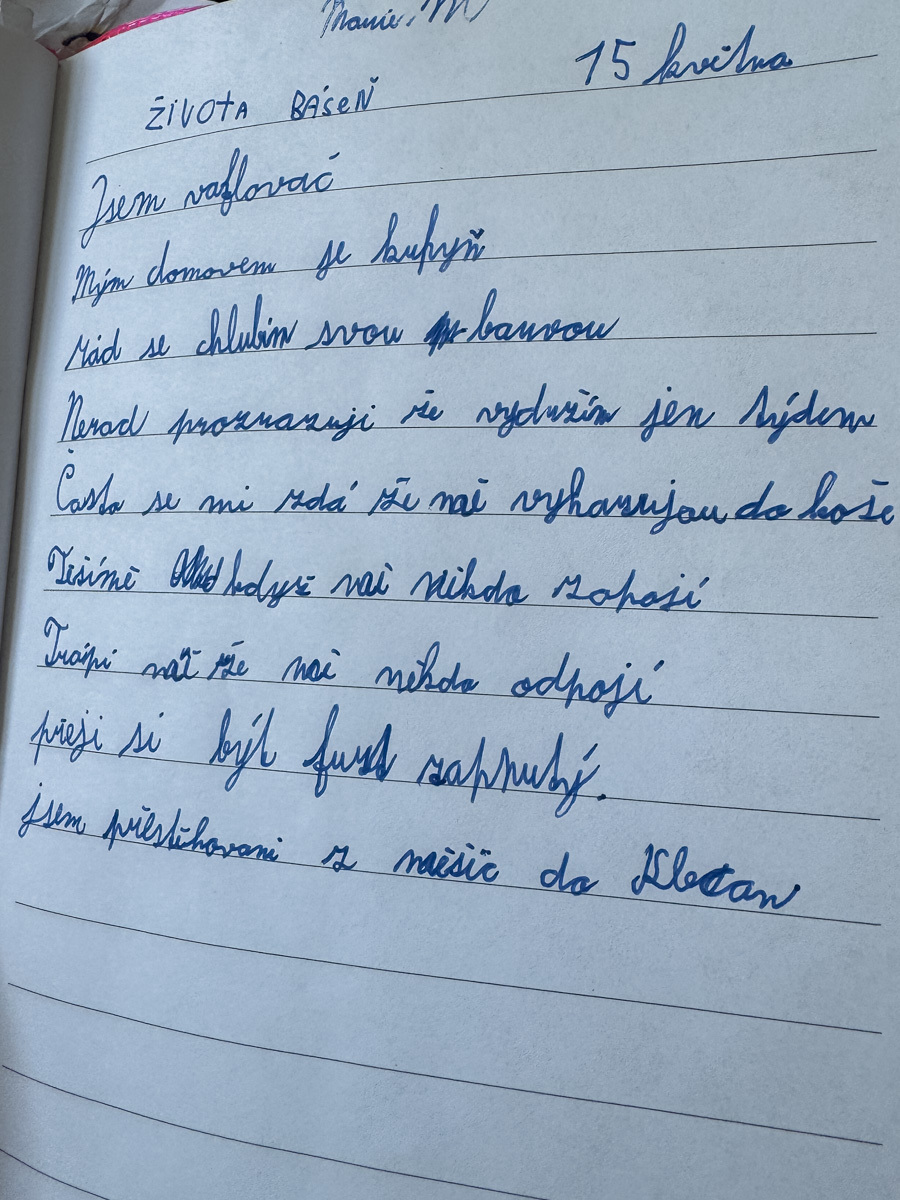 15 května
ŽIVOTA BÁSEŇ
Jsem vaflovač
Mým domovem je kuhyň
rád se chlubim svou barvou
Nerad prozrazuji že vydržím jen týden
Často se mi zdá že mě vyhazujou do koše
Těšímě když mě někdo zapojí
Trápi mě že mě někdo odpojí
přeji si být furt zapnutý.
jsem přestěhovani z měšíc do Klecan